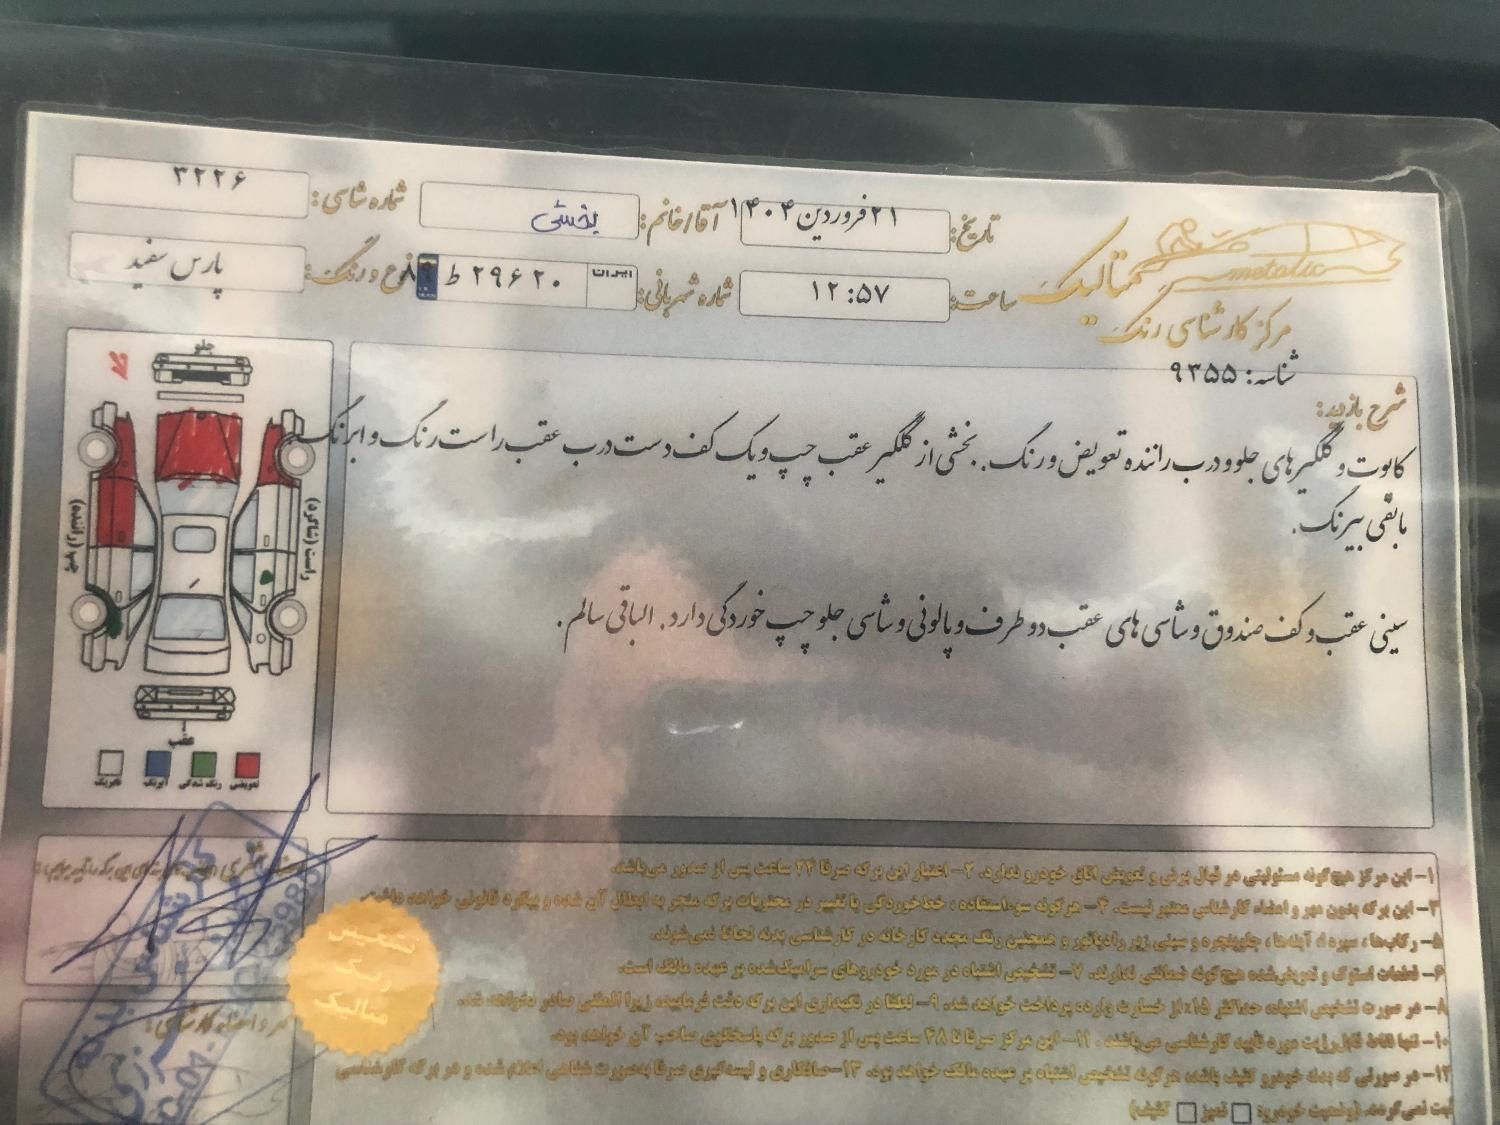 metalic
متالیک
مرکز کارشناسی رنگ
تاریخ: ۲۱ فروردین ۱۴۰۴
آقا/خانم: بخشی
شماره شاسی: ۳۲۲۶
ساعت: ۱۲:۵۷
شماره شهربانی: ایران ۲۰ ۲۹۶ ط ۸۹
نوع و رنگ: پارس سفید
شناسه: ۹۳۵۵
شرح بازدید:
کاپوت و گلگیرهای جلو و درب راننده تعویض و رنگ.. بخشی از گلگیر عقب چپ و یک کف دست درب عقب راست رنگ و ابرنگ
مابقی بیرنگ.
سینی عقب و کف صندوق و شاسی های عقب دو طرف و پالونی و شاسی جلو چپ خوردگی دارد. الباقی سالم.
جلو
چپ (راننده)
راست (شاگرد)
عقب
تعویض
رنگ شدگی
آبرنگ
۱- این مرکز هیچ‌گونه مسئولیتی در قبال برش و تعویض اتاق خودرو ندارد. ۲- اعتبار این برگه صرفا ۲۴ ساعت پس از صدور می‌باشد.
۳- این برگه بدون مهر و امضاء کارشناسی معتبر نیست. ۴- هرگونه سوءاستفاده، خط‌خوردگی یا تغییر در محتویات برگه منجر به ابطال آن شده و پیگرد قانونی خواهد داشت.
۵- رکاب‌ها، سپرها، آینه‌ها، جلوپنجره و سینی زیر رادیاتور و همچنین رنگ مجدد کارخانه در کارشناسی بدنه لحاظ نمی‌شوند.
۶- قطعات استوک و تعویض‌شده هیچ‌گونه ضمانتی ندارند. ۷- تشخیص اشتباه در مورد خودروهای سرامیک‌شده بر عهده مالک است.
۸- در صورت تشخیص اشتباه، حداکثر ۱۵٪ از خسارت وارده پرداخت خواهد شد. ۹- لطفا در نگهداری این برگه دقت فرمایید، زیرا المثنی صادر نخواهد شد.
۱۰- تنها نقاط قابل‌رؤیت مورد تأیید کارشناسی می‌باشند. ۱۱- این مرکز صرفا تا ۴۸ ساعت پس از صدور برگه پاسخگوی صاحب آن خواهد بود.
۱۲- در صورتی که بدنه خودرو کثیف باشد، هرگونه تشخیص اشتباه بر عهده مالک خواهد بود. ۱۳- صافکاری و لیسه‌گیری صرفا به‌صورت شفاهی اعلام شده و در برگه کارشناسی
ثبت نمی‌گردد. (وضعیت خودرو: تمیز کثیف)
مهر و امضاء کارشناسی:
تشخیص
رنگ
متالیک